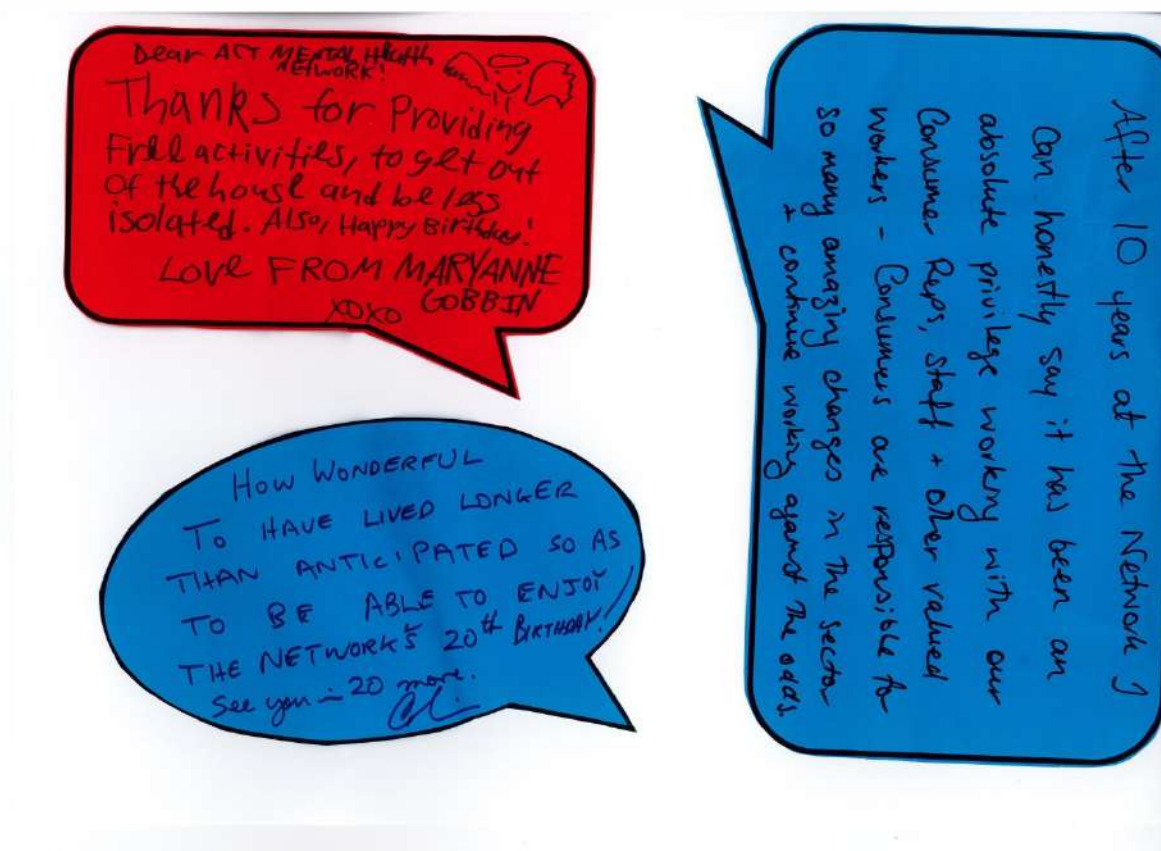 Dear ACT MENTAL Health
NETWORK!
Thanks for Providing
Free activities, to get out
of the house and be less
isolated. Also, Happy Birthday!
Love FROM MARYANNE
GOBBIN
XOXO
HOW WONDERFUL
TO HAVE LIVED LONGER
THAN ANTICIPATED SO AS
TO BE ABLE TO ENJOY
THE NETWORK'S 20th BIRTHDAY!
See you in 20 more.
After 10 years at the Network I
Can honestly say it has been an
absolute privilege working with our
Consumer Reps, Staff + other valued
workers - Consumers are responsible for
so many amazing changes in the sector
+ continue working against the odds.